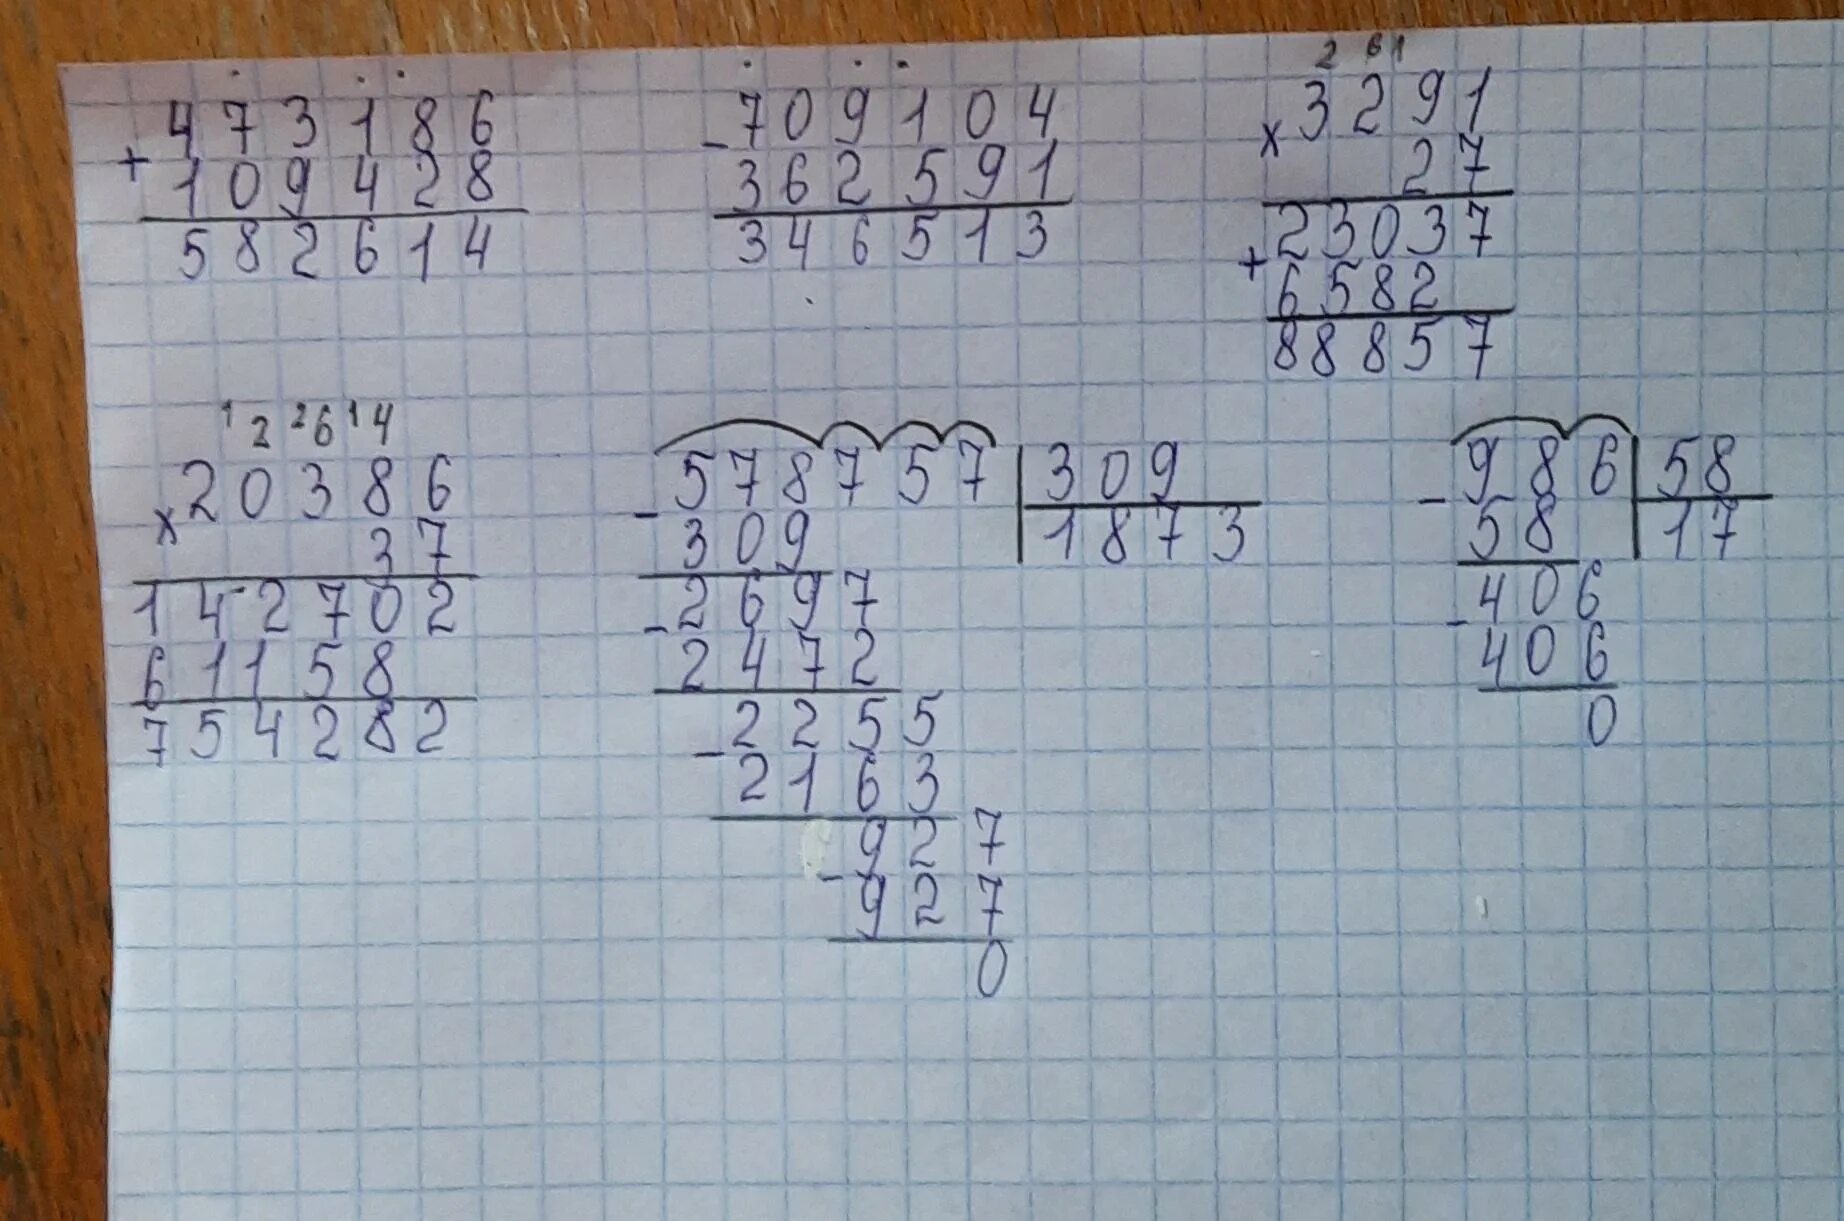 2 6 1
473186
+
109428
582614
709104
-
362591
346513
3291
x
27
23037
+
6582
88857
1 2 2 6 1 4
20386
x
37
142702
61158
754282
-578757 | 309
309 1873
2697
-
2472
2255
-
2163
927
-
927
0
-986 | 58
58 17
406
-
406
0